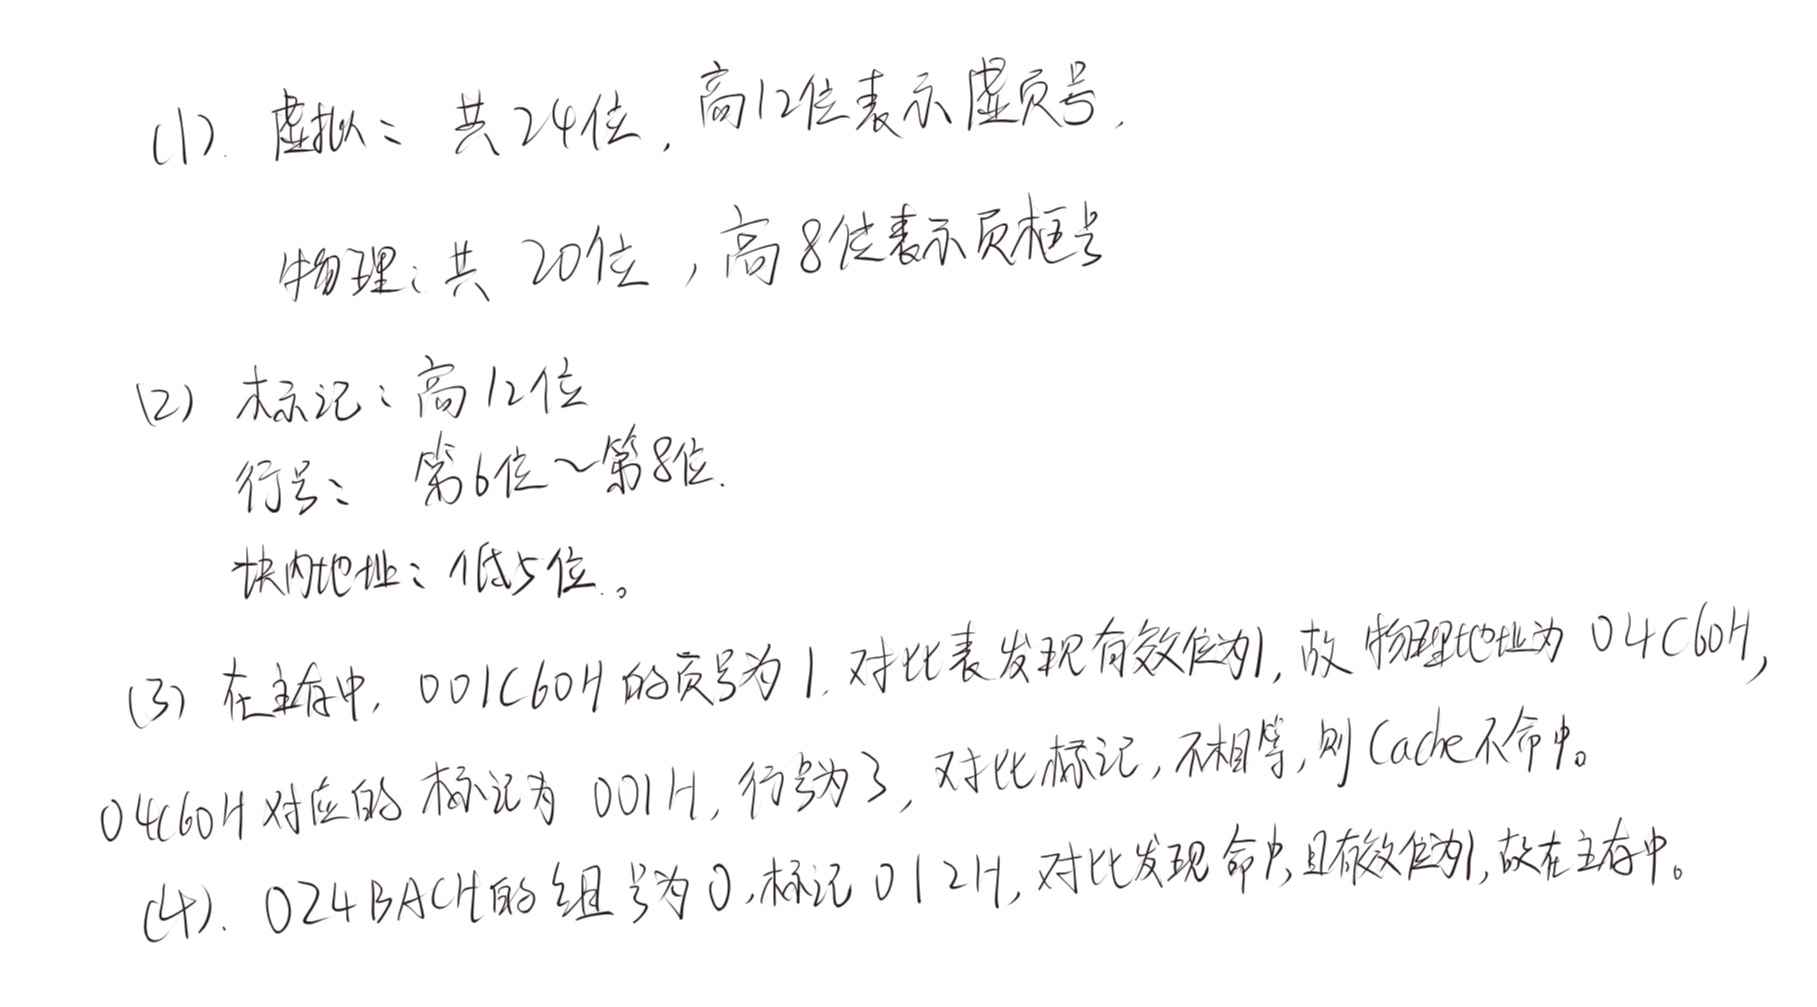 (1). 虚拟: 共24位, 高12位表示虚页号.
物理: 共 20位, 高8位表示页框号
(2) 标记: 高12位
行号: 第6位~第8位.
块内地址: 低5位.。
(3) 在主存中, 001C60H的页号为1. 对比表发现有效位为1, 故 物理地址为 04C60H,
04C60H对应的 标记为 001H, 行号为3, 对比标记, 不相等, 则 Cache不命中。
(4). 024BACH的组号为0, 标记 012H, 对比发现 命中, 且有效位为1, 故在主存中。